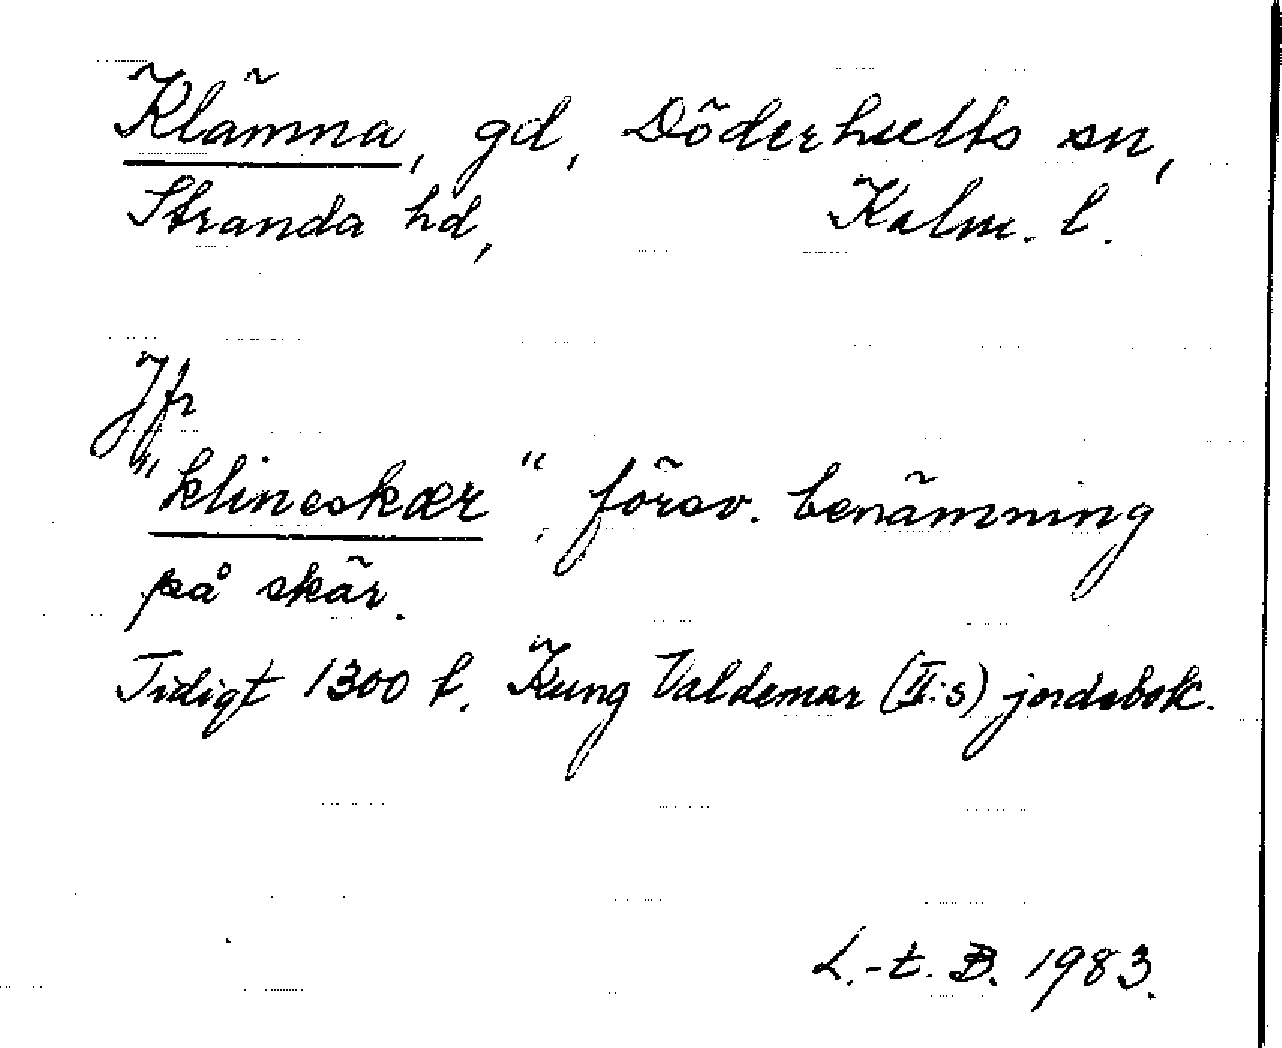 Klämna, gd, Döderhults sn,
Stranda hd, Kalm. l.
Jfr
"klineskær", försv. benämning
på skär.
Tidigt 1300 t. Kung Valdemar (II:s) jordebok.
L.-t. B. 1983.